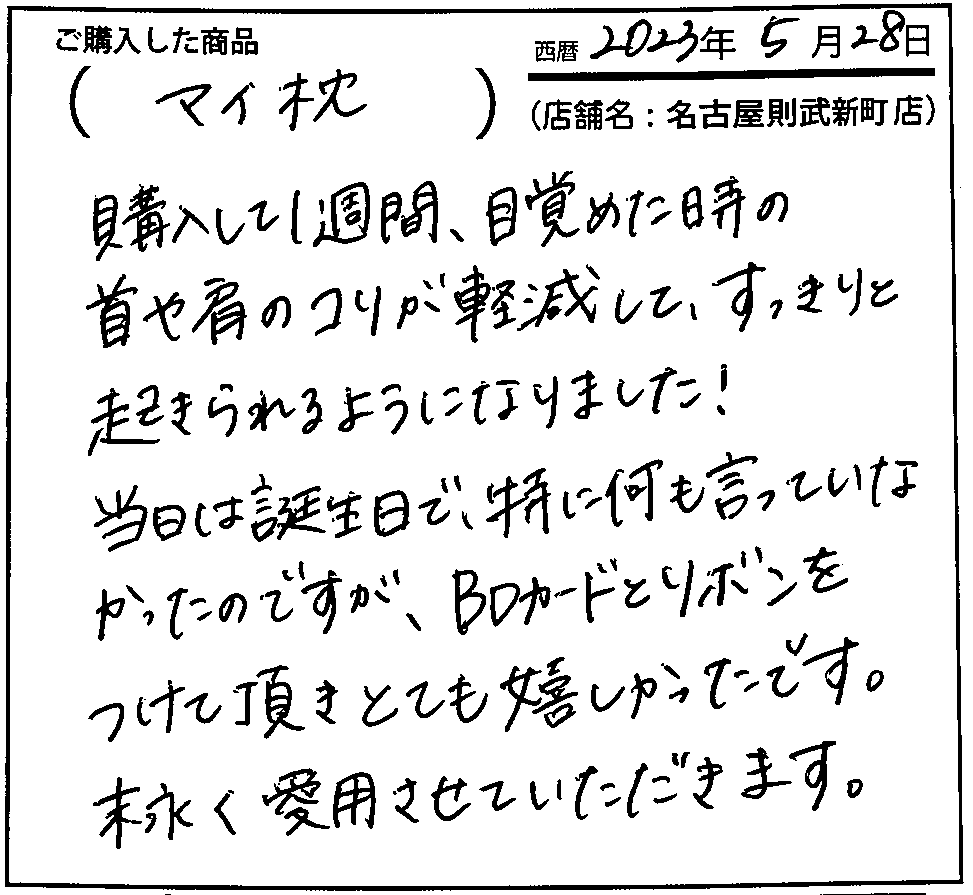 ご購入した商品
西暦 2023年 5月28日
( マイ枕 )
(店舗名：名古屋則武新町店)
購入して1週間、目覚めた時の
首や肩のコリが軽減して、すっきりと
起きられるようになりました！
当日は誕生日で、特に何も言っていな
かったのですが、BDカードとリボンを
つけて頂きとても嬉しかったです。
末永く愛用させていただきます。